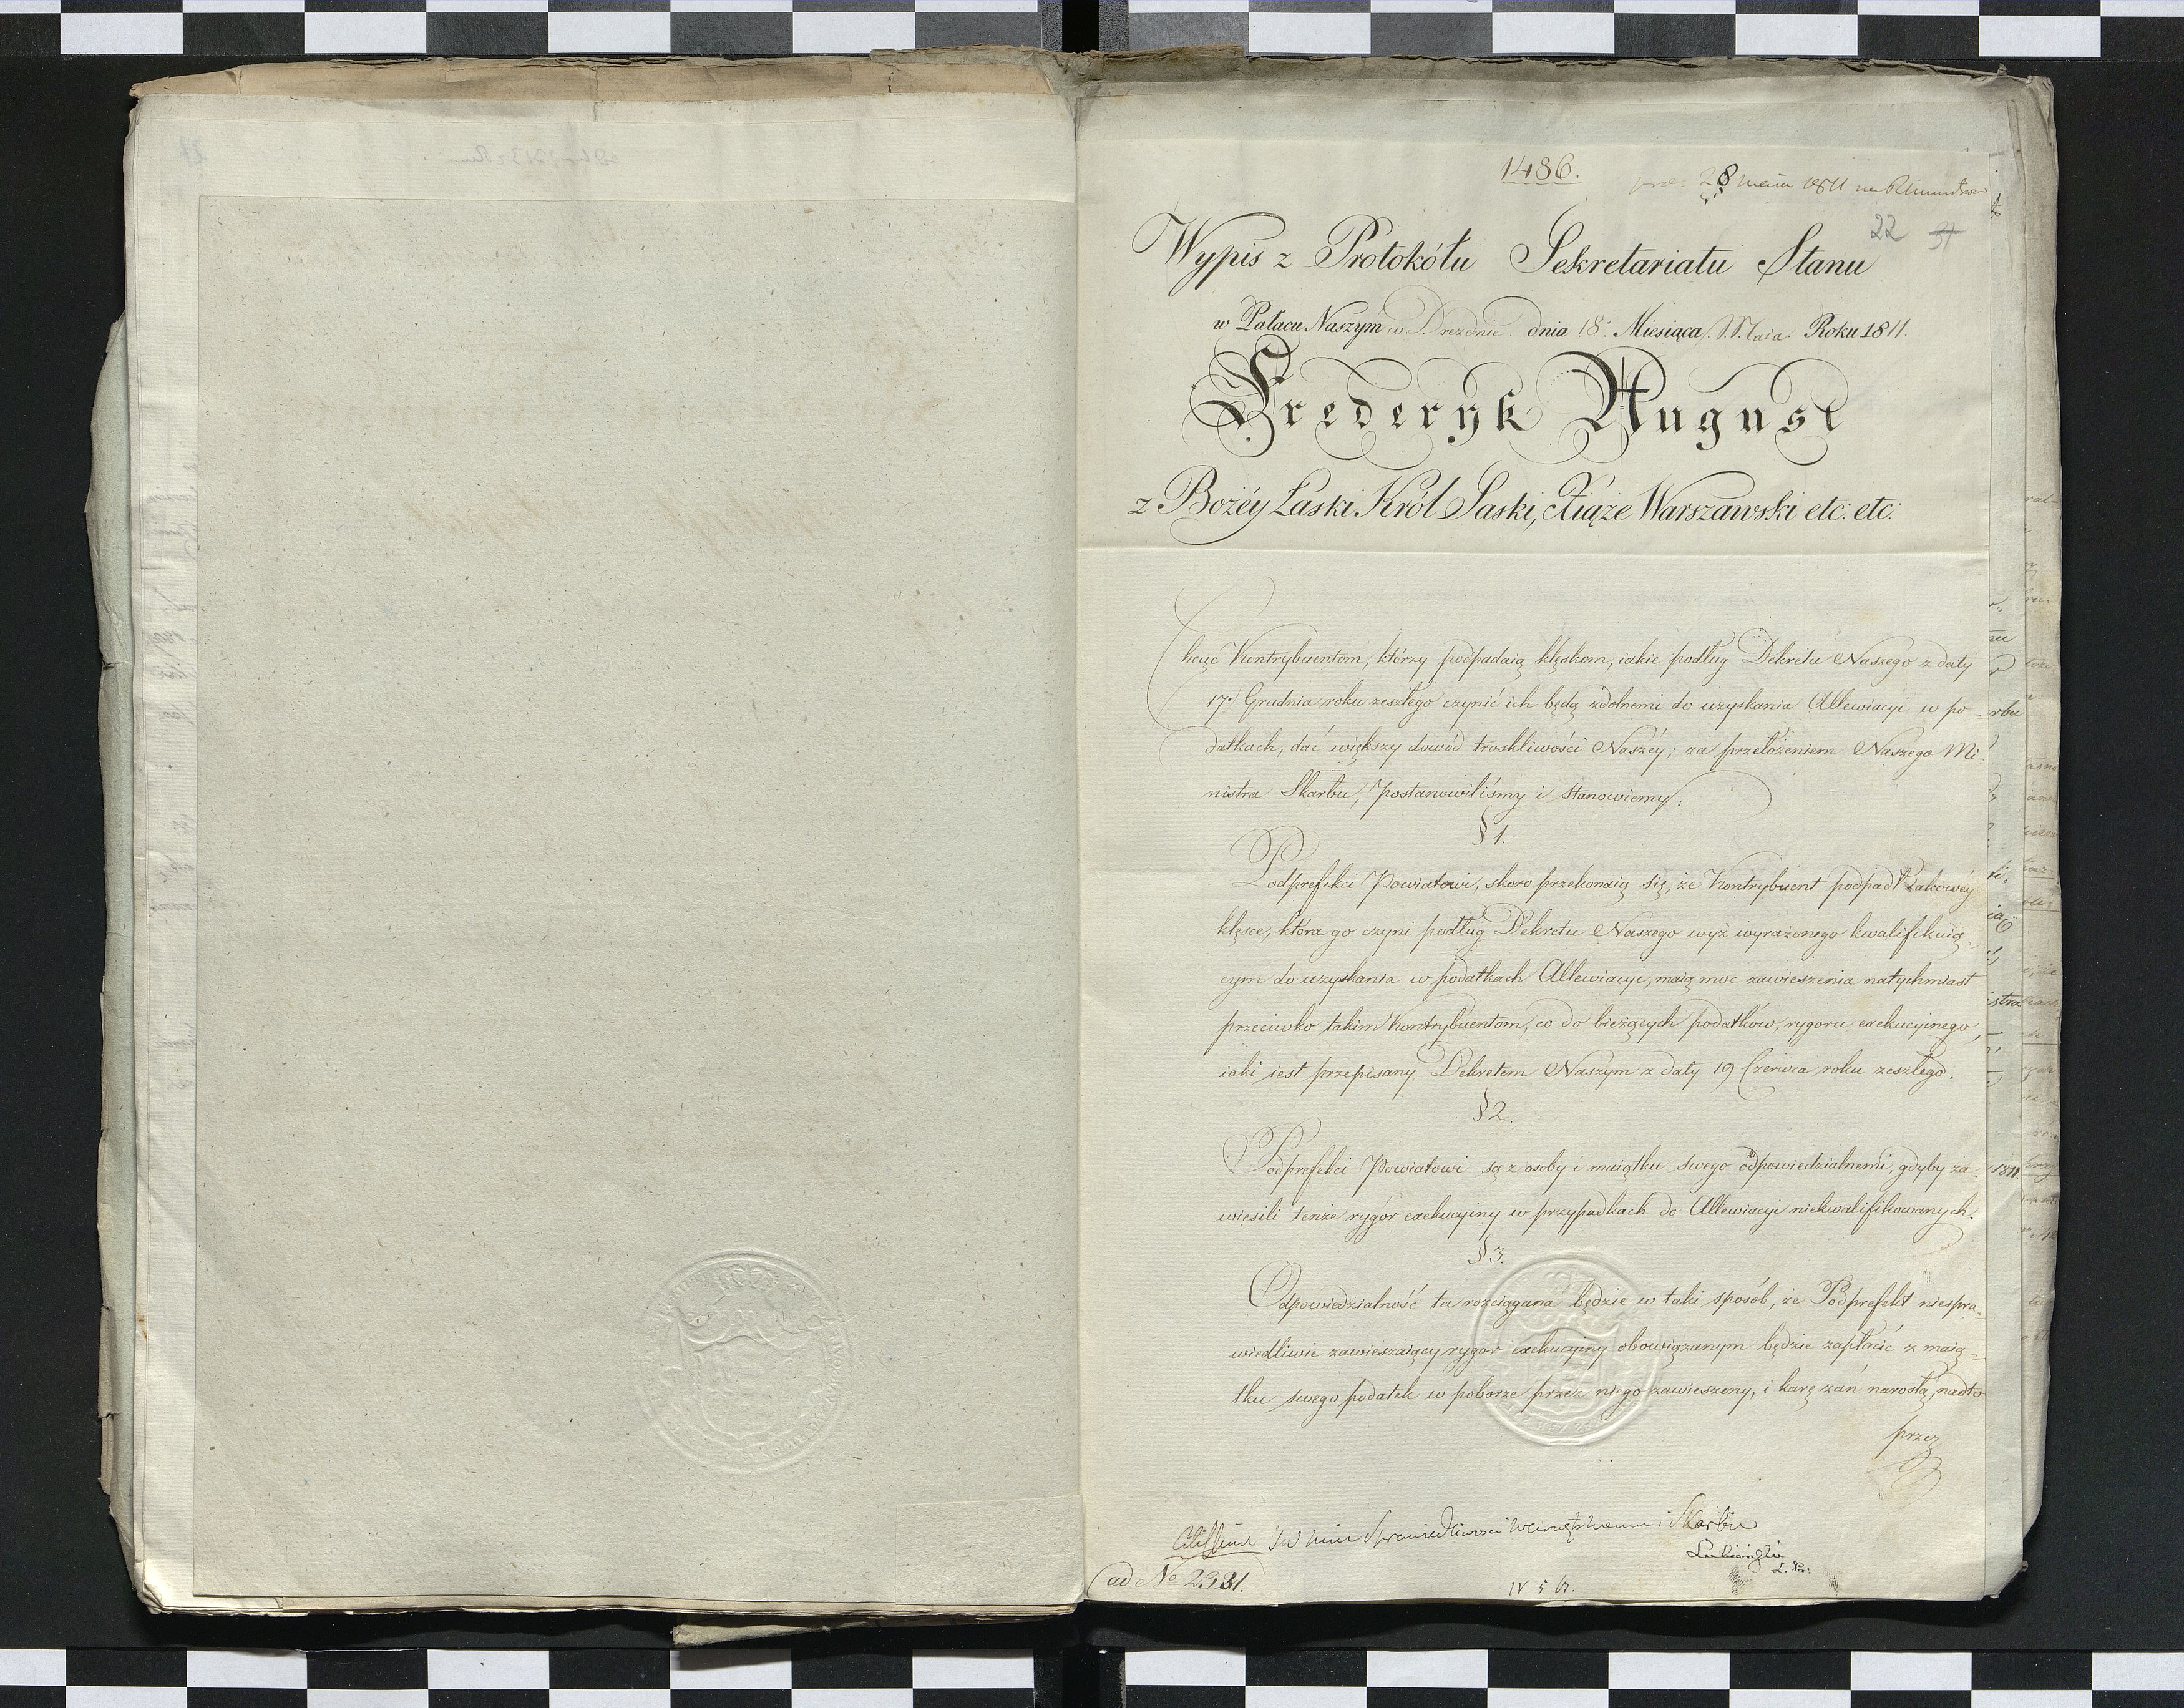 1486.
28 maia 1811 na
22 31
Wypis z Protokółu Sekretariatu Stanu
w Pałacu Naszym w Dreznie. dnia 18. Miesiąca Maia Roku 1811.
Frederyk August
z Bożéy Łaski Król Saski, Xiąże Warszawski etc: etc:
Chcąc Kontrybuentom, którzy podpadaią klęskom, iakie podług Dekretu Naszego z daty
17. Grudnia roku zeszłego czynić ich będą zdolnemi do uzyskania Allewiacyi w po-
datkach, dać większy dowód troskliwości Naszéy; za przełożeniem Naszego Mi-
nistra Skarbu, postanowiliśmy i stanowiemy:
§ 1.
Podprefekci Powiatowi, skoro przekonaią się, że Kontrybuent podpadł iakowéy
klęsce, która go czyni podług Dekretu Naszego wyż wyrażonego kwalifikuią-
cym do uzyskania w podatkach Allewiacyi, maią moc zawieszenia natychmiast
przeciwko takim Kontrybuentom, co do bieżących podatków, rygoru exekucyinego,
iaki iest przepisany Dekretem Naszym z daty 19 Czerwca roku zeszłego.
§ 2.
Podprefekci Powiatowi są z osoby i maiątku swego odpowiedzialnemi, gdyby za-
wiesili tenże rygor exekucyiny w przypadkach do Allewiacyi niekwalifikowanych.
§ 3.
Odpowiedzialność ta rozciągana będzie w taki sposób, że Podprefekt niespra-
wiedliwie zawieszaiący rygor exekucyiny obowiązanym będzie zapłacić z maią-
tku swego podatek w poborze przez niego zawieszony, i karę zań narosłą, nadto
przez
Citissime JW Min Sprawiedliwości Wewnętrznem i Skarbu
Lubieński
ad No 2331.